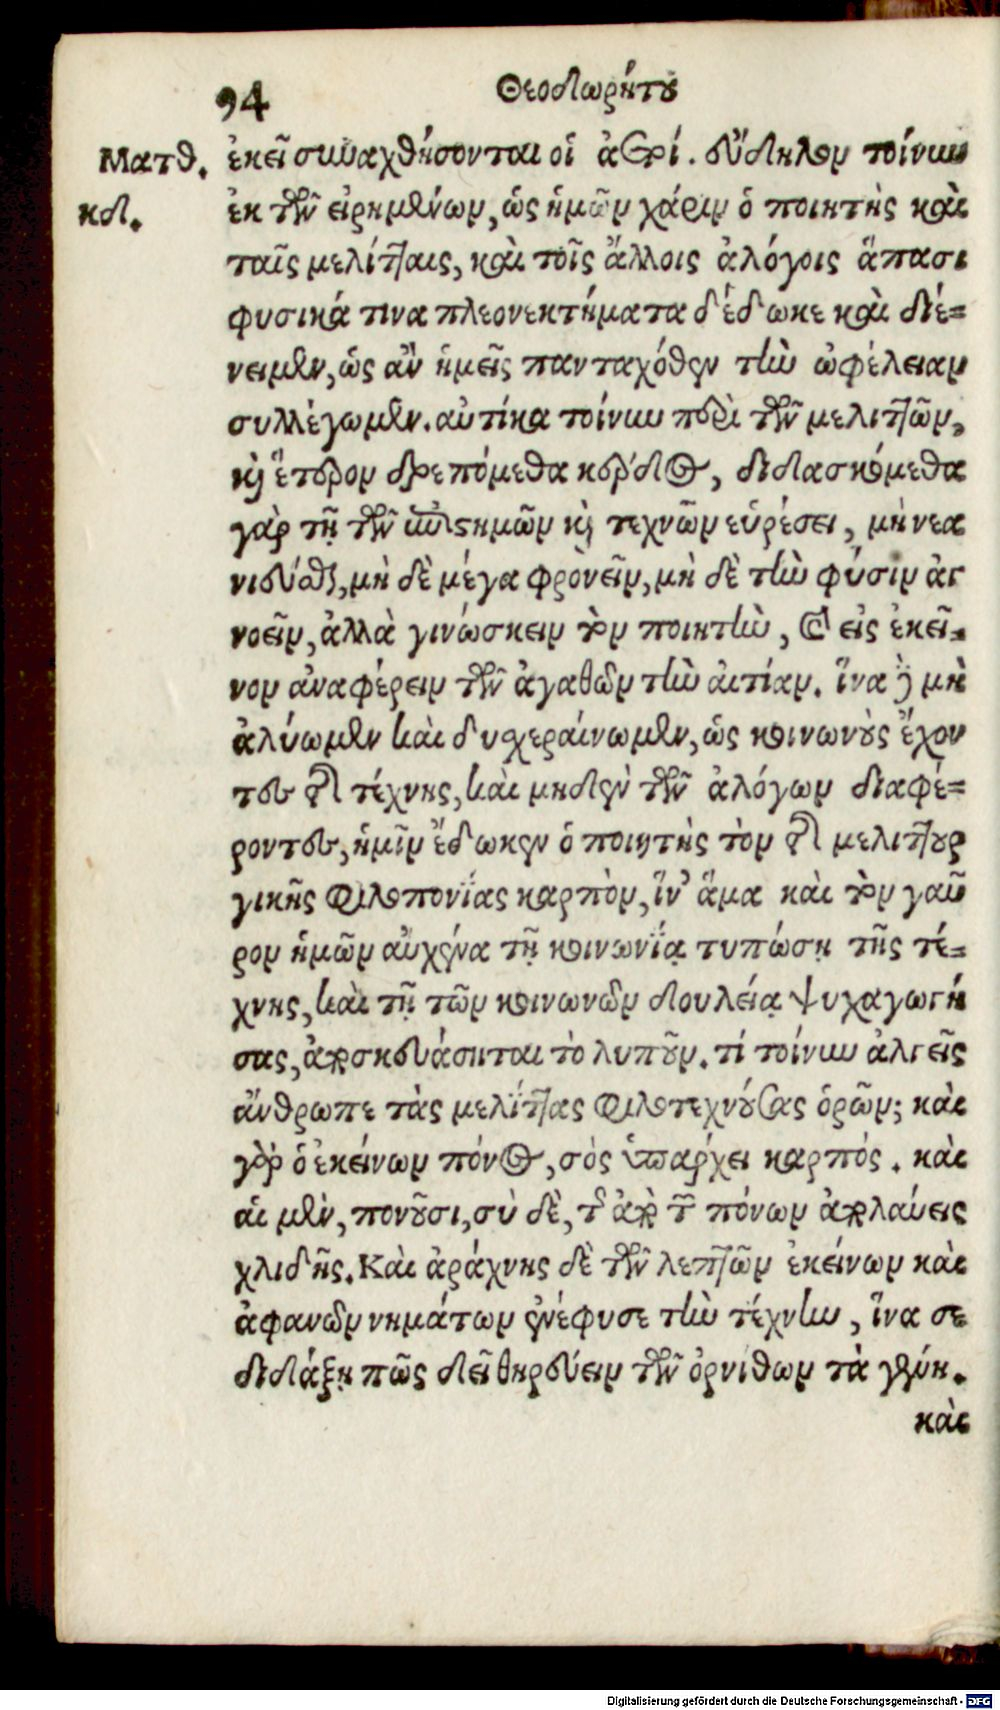 94 Θεοδωρήτου
Ματθ. ἐκεῖ συναχθήσονται οἱ ἀετοί. εὔδηλον τοίνυν
κδ. ἐκ τῶν εἰρημένων, ὡς ἡμῶν χάριν ὁ ποιητὴς καὶ
ταῖς μελίτταις, καὶ τοῖς ἄλλοις ἀλόγοις ἅπασι
φυσικά τινα πλεονεκτήματα δέδωκε καὶ διέ=
νειμεν, ὡς ἂν ἡμεῖς πανταχόθεν τὴν ὠφέλειαν
συλλέγωμεν. αὐτίκα τοίνυν περὶ τῶν μελιττῶν,
καὶ ἕτερον δρεπόμεθα κέρδος, διδασκόμεθα
γὰρ τῇ τῶν ἐπιστημῶν καὶ τεχνῶν εὑρέσει, μὴ νεα
νιεύεσθαι, μὴ δὲ μέγα φρονεῖν, μὴ δὲ τὴν φύσιν ἀγ
νοεῖν, ἀλλὰ γινώσκειν τὸν ποιητὴν, καὶ εἰς ἐκεῖ=
νον ἀναφέρειν τῶν ἀγαθῶν τὴν αἰτίαν. ἵνα γὰρ μὴ
ἀλύωμεν καὶ δυχεραίνωμεν, ὡς κοινωνοὺς ἔχον
τες τῆς τέχνης, καὶ μηδὲν τῶν ἀλόγων διαφέ=
ροντες, ἡμῖν ἔδωκεν ὁ ποιητὴς τὸν τῆς μελιττουρ
γικῆς φιλοπονΐας καρπὸν, ἵν' ἅμα καὶ τὸν γαῦ
ρον ἡμῶν αὐχένα τῇ κοινωνΐᾳ τυπώσῃ τῆς τέ=
χνης, καὶ τῇ τῶν κοινωνῶν δουλείᾳ ψυχαγωγή
σας, ἀποσκευάσηται τὸ λυποῦν. τί τοίνυν ἀλγεῖς
ἄνθρωπε τὰς μελίττας φιλοτεχνούσας ὁρῶν; καὶ
γὰρ ὁ ἐκείνων πόνος, σὸς ὑπάρχει καρπός. καὶ
αἱ μὲν, πονοῦσι, σὺ δὲ, τῆς ἀπὸ τῶν πόνων ἀπολαύεις
χλιδῆς. Καὶ ἀράχνης δὲ τῶν λεπτῶν ἐκείνων καὶ
ἀφανῶν νημάτων ἐνέφυσε τὴν τέχνην, ἵνα σε
διδάξῃ πῶς δεῖ θηρεύειν τῶν ὀρνίθων τὰ γένη.
καὶ
Digitalisierung gefördert durch die Deutsche Forschungsgemeinschaft - DFG